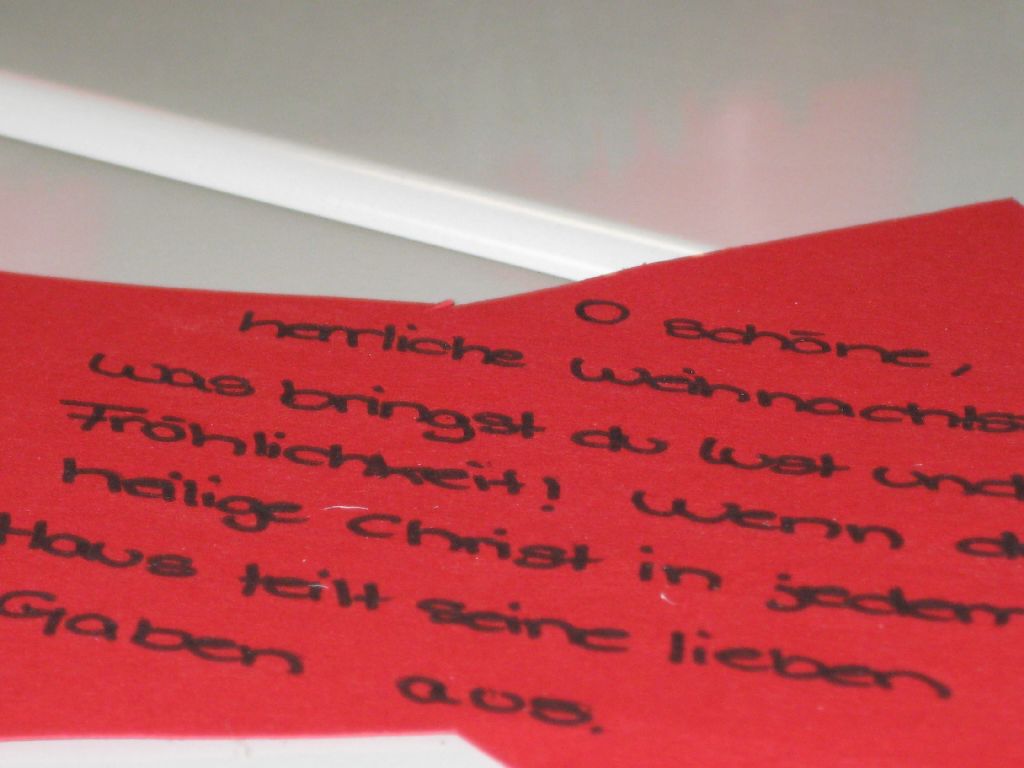 O schöne,
herrliche weihnachts
was bringst du lust und
Fröhlichkeit! wenn d
heilige Christ in jedem
Haus teilt seine lieben
Gaben aus.